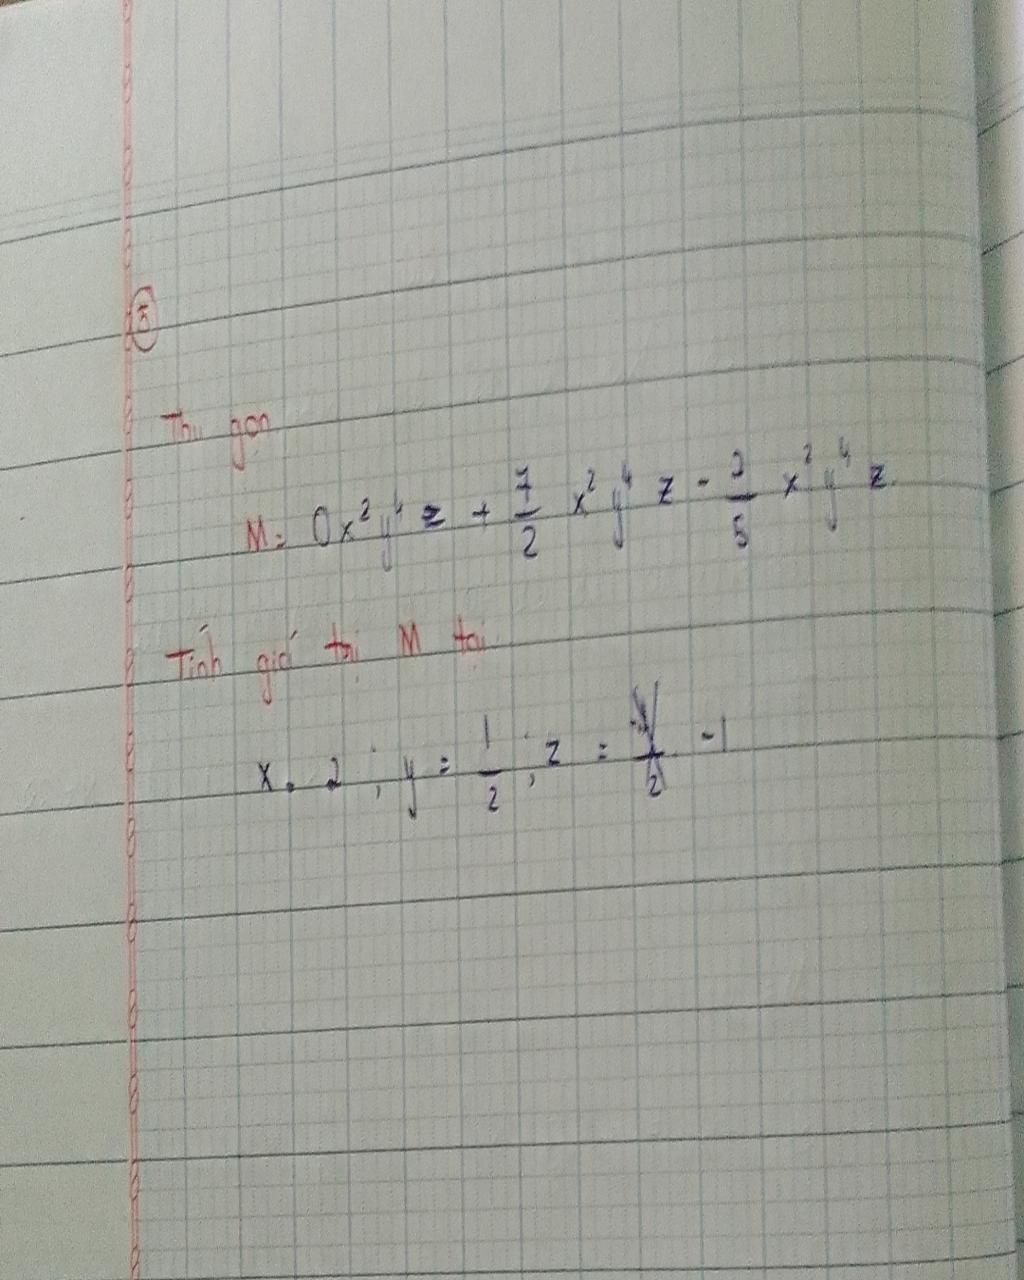 5
Thu gọn
M = 0x²y⁴z + 7/2 x²y⁴z - 2/5 x²y⁴z
Tính giá trị M tại
x = 2 ; y = 1/2 ; z = -1